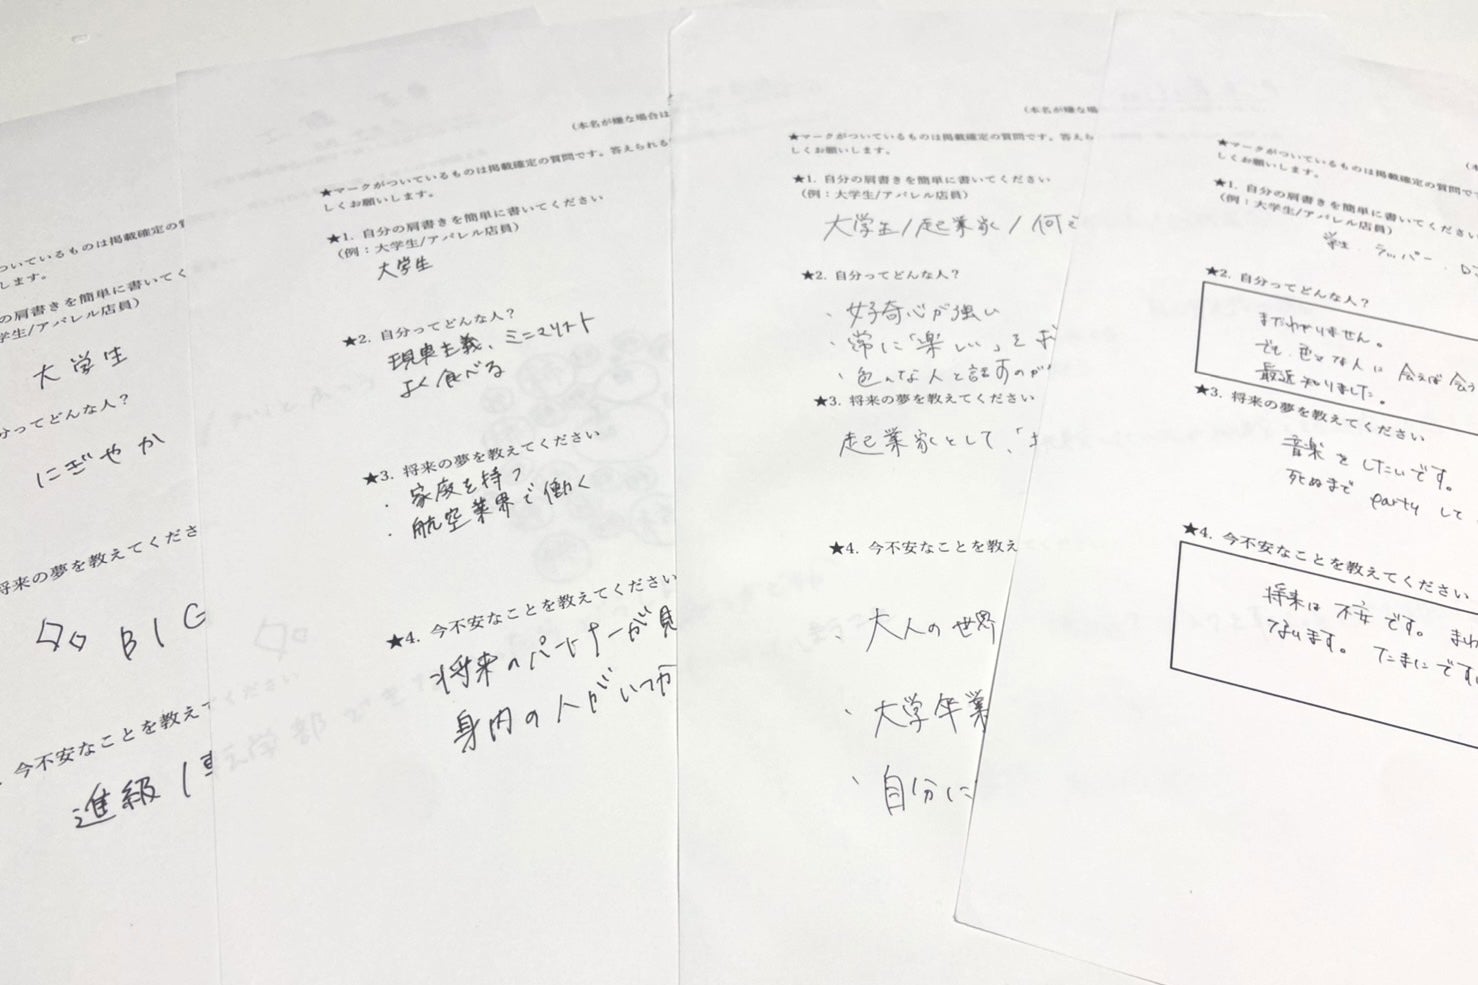 ついているものは掲載確定の
します。
の肩書きを簡単に書いてく
学生/アパレル店員)
大学生
分ってどんな人?
にぎやか
将来の夢を教えてくださ
BIG
今不安なことを教えて
進級
(本名が嫌な場合は
★マークがついているものは掲載確定の質問です。答えられる
しくお願いします。
★1. 自分の肩書きを簡単に書いてください
(例:大学生/アパレル店員)
大学生
★2. 自分ってどんな人?
現実主義、ミニマリスト
よく食べる
★3. 将来の夢を教えてください
・家庭を持つ
・航空業界で働く
★4. 今不安なことを教えてください
将来のパートナーが見
身内の人がいつか
(本名が嫌な場
★マークがついているものは掲載確定の質問です。答えら
しくお願いします。
★1. 自分の肩書きを簡単に書いてください
(例:大学生/アパレル店員)
大学生/起業家/何
★2. 自分ってどんな人?
・好奇心が強い
・常に「楽しい」を
・色んな人と話すのが
★3. 将来の夢を教えてください
起業家として、「
★4. 今不安なことを教え
・大人の世界
・大学卒業
・自分に
★マークがついているものは掲載確定の質問です
しくお願いします。
★1. 自分の肩書きを簡単に書いてください
(例:大学生/アパレル店員)
学生・ラッパー・DJ
★2. 自分ってどんな人?
まだわかりません。
でも、色々な人に会えば会う
最近知りました。
★3. 将来の夢を教えてください
音楽をしたいです。
死ぬまでpartyして
★4. 今不安なことを教えてください
将来は不安です。
ないます。たまにです